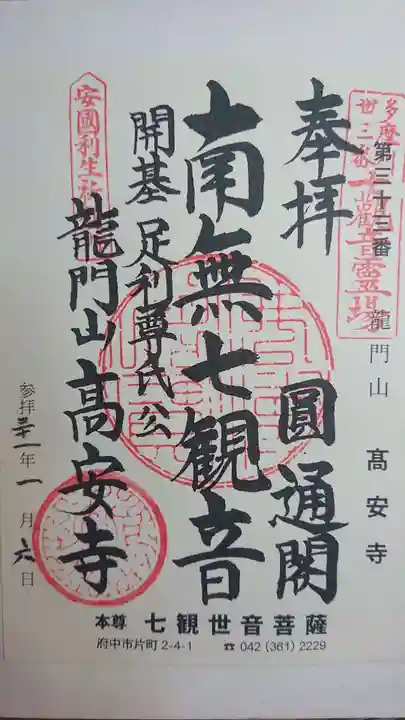 多摩
卅三番
霊場
第三十三番 龍門山 髙安寺
奉拝 圓通閣
南無七観音
開基 足利尊氏公
安國利生
龍門山髙安寺
参拝 三十一年 一月 六日
本尊 七観世音菩薩
府中市片町2-4-1 ☎ 042 (361) 2229